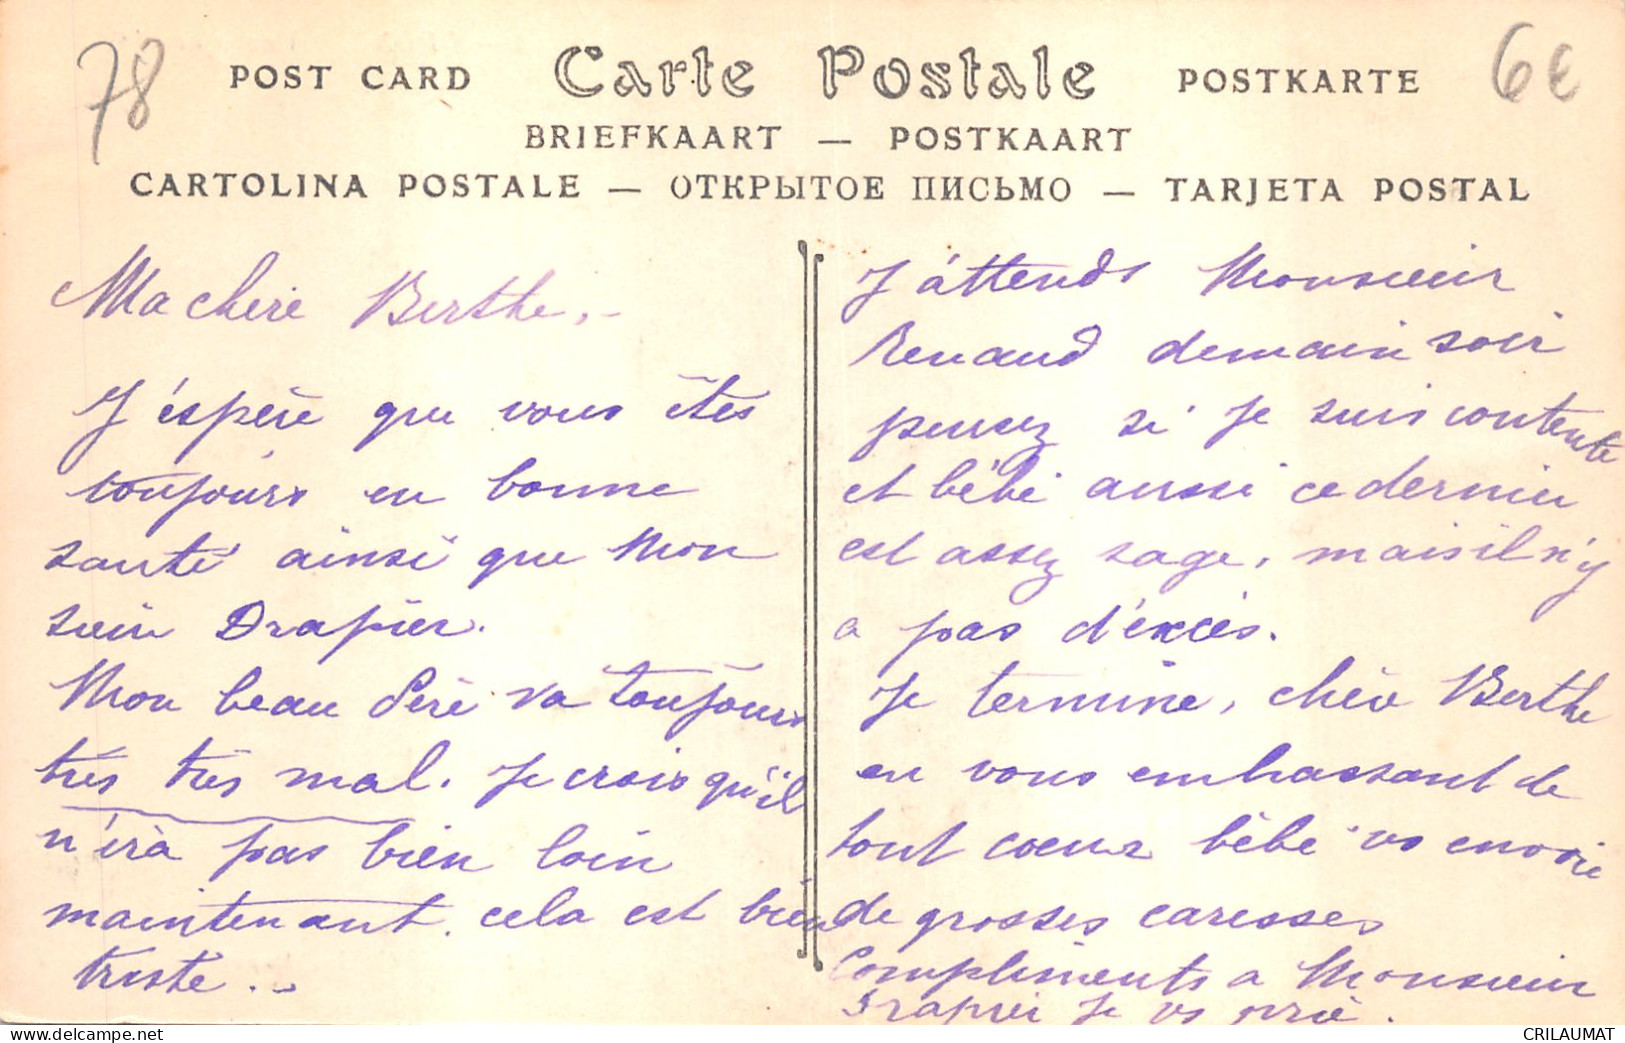 78
POST CARD Carte Postale POSTKARTE
6€
BRIEFKAART — POSTKAART
CARTOLINA POSTALE — ОТКРЫТОЕ ПИСЬМО — TARJETA POSTAL
Ma chère Berthe,.-
J'éspère que vous êtes
toujours en bonne
santé ainsi que Mon
sieur Drapier.
Mon beau Père va toujours
très très mal. Je crois qu'il
n'ira pas bien loin
maintenant. cela est bien
triste..-
J'attends Monsieur
Renaud demain soir
pensez si je suis contente
et bébé aussi ce dernier
est assez sage, mais il n'y
a pas d'excès.
Je termine, chère Berthe
en vous embrassant de
tout coeur bébé vs envoie
de grosses caresses
Compliments a Monsieur
Drapier je vs prie.
https://www.delcampe.net
CRILAUMAT